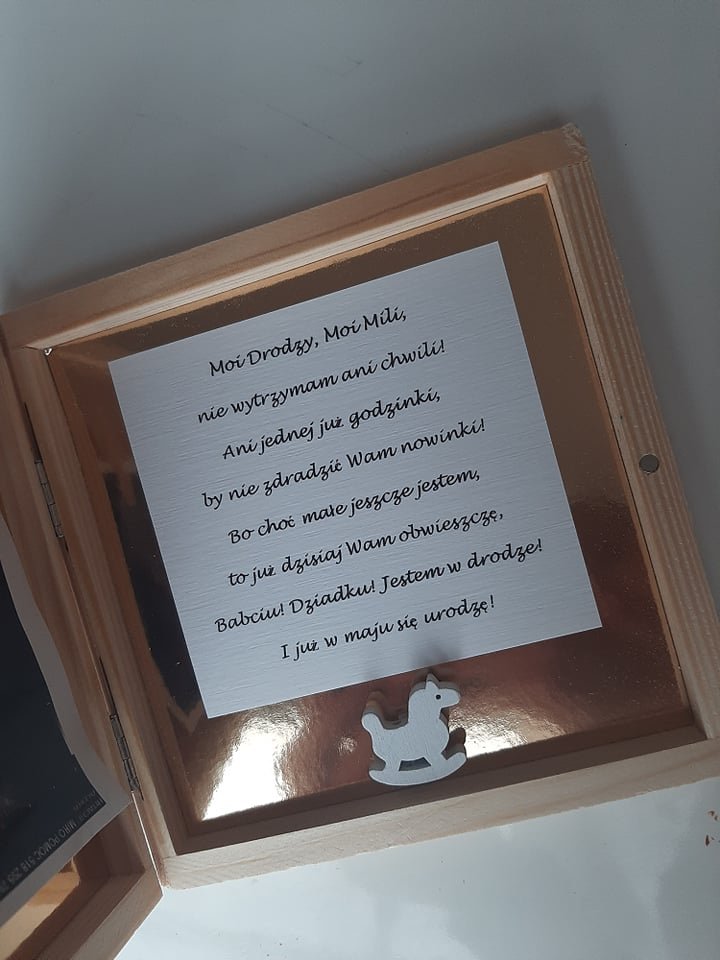 Moi Drodzy, Moi Mili,
nie wytrzymam ani chwili!
Ani jednej już godzinki,
by nie zdradzić Wam nowinki!
Bo choć małe jeszcze jestem,
to już dzisiaj Wam obwieszczę,
Babciu! Dziadku! Jestem w drodze!
I już w maju się urodzę!
MIRO POMOC 518 255